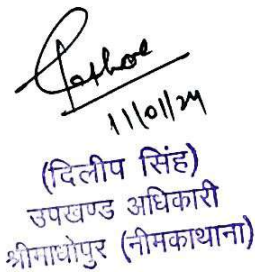 11/01/24
(दिलीप सिंह)
उपखण्ड अधिकारी
श्रीमाधोपुर (नीमकाथाना)